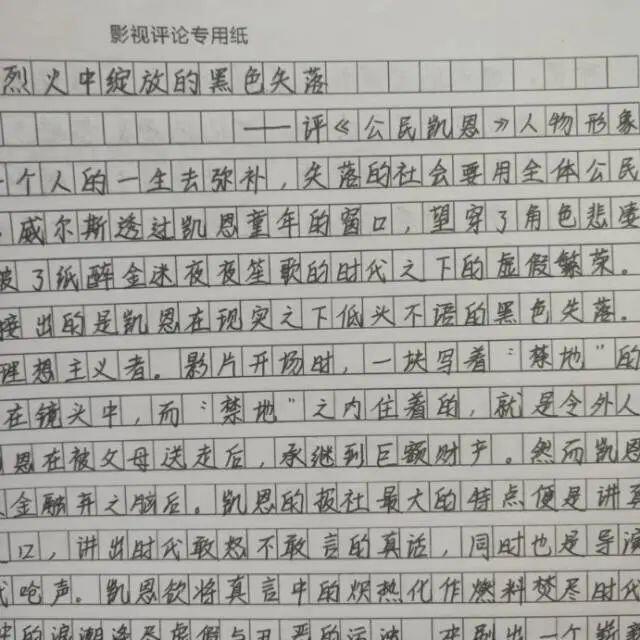 影视评论专用纸
烈火中绽放的黑色失落
——评《公民凯恩》人物形象
一个人的一生去弥补，失落的社会要用全体公民
威尔斯透过凯恩童年的窗口，望穿了角色悲凄
被了纸醉金迷夜夜笙歌的时代之下的虚假繁荣。
接出的是凯恩在现实之下低头不语的黑色失落。
理想主义者。影片开场时，一块写着“禁地”的
在镜头中，而“禁地”之内住着的，就是令外人
恩在被父母送走后，承继到巨额财产。然而凯恩
金融弃之脑后。凯恩的报社最大的特点便是讲真
口，讲出时代敢怒不敢言的真话，同时也是导演
呛声。凯恩欲将真言中的炽热化作燃料焚尽时代
的浪潮逢尽虚假与丑恶的污波